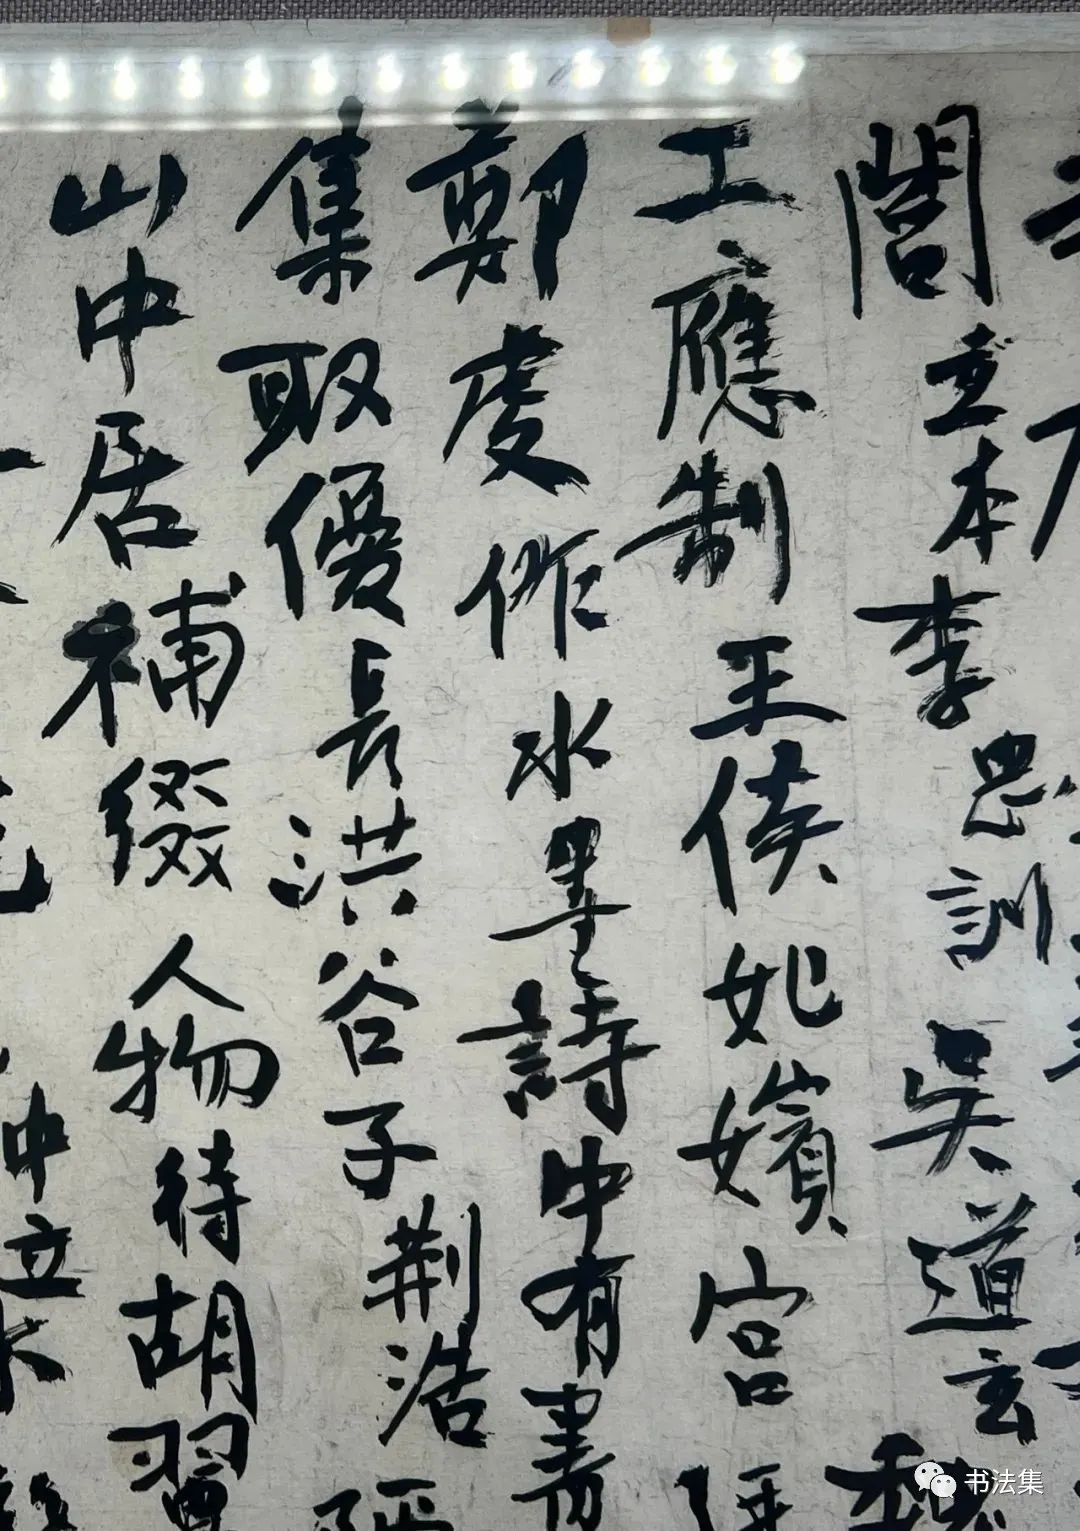 閻立本李思訓吳道玄魏
工應制王侯妃嬪宮
鄭虔作水墨詩中有畫
集取優長洪谷子荆浩
山中居補綴人物待胡翼
中立
书法集